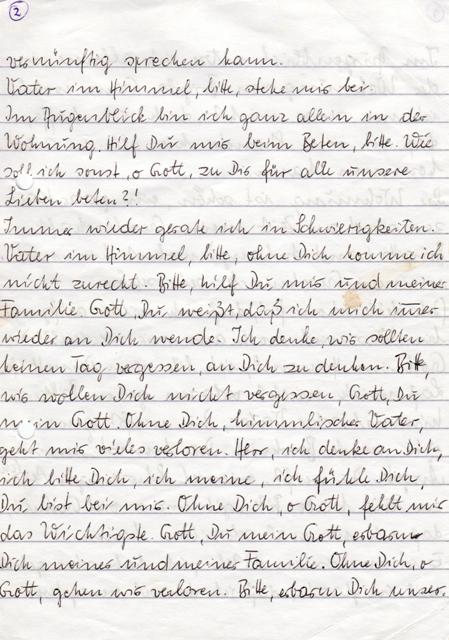 2
vernünftig sprechen kann.
Vater im Himmel, bitte, stehe mir bei.
Im Augenblick bin ich ganz allein in der
Wohnung. Hilf Du mir beim Beten, bitte. Wie
soll ich sonst, o Gott, zu Dir für alle unsere
Lieben beten?!
Immer wieder gerate ich in Schwierigkeiten.
Vater im Himmel, bitte, ohne Dich komme ich
nicht zurecht. Bitte, hilf Du mir und meiner
Familie. Gott, Du weißt, daß ich mich immer
wieder an Dich wende. Ich denke, wir sollten
keinen Tag vergessen, an Dich zu denken. Bitte,
wir wollen Dich nicht vergessen, Gott, Du
mein Gott. Ohne Dich, himmlischer Vater,
geht mir vieles verloren. Herr, ich denke an Dich,
ich bitte Dich, ich meine, ich fühle Dich,
Du bist bei mir. Ohne Dich, o Gott, fehlt mir
das Wichtigste. Gott, Du mein Gott, erbarme
Dich meiner und meiner Familie. Ohne Dich, o
Gott, gehen wir verloren. Bitte, erbarm Dich unser.